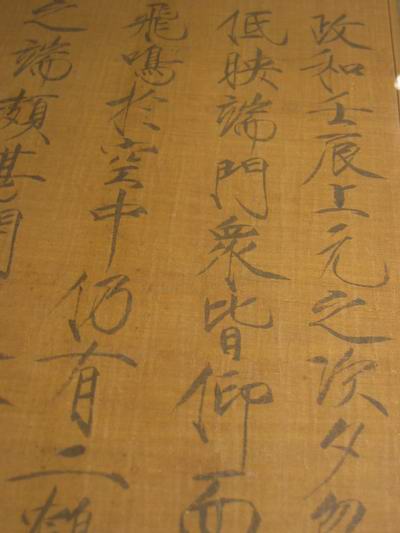 政和壬辰上元之次夕忽
低映端門衆皆仰而
飛鳴於空中仍有二鶴
之端頗甚閑